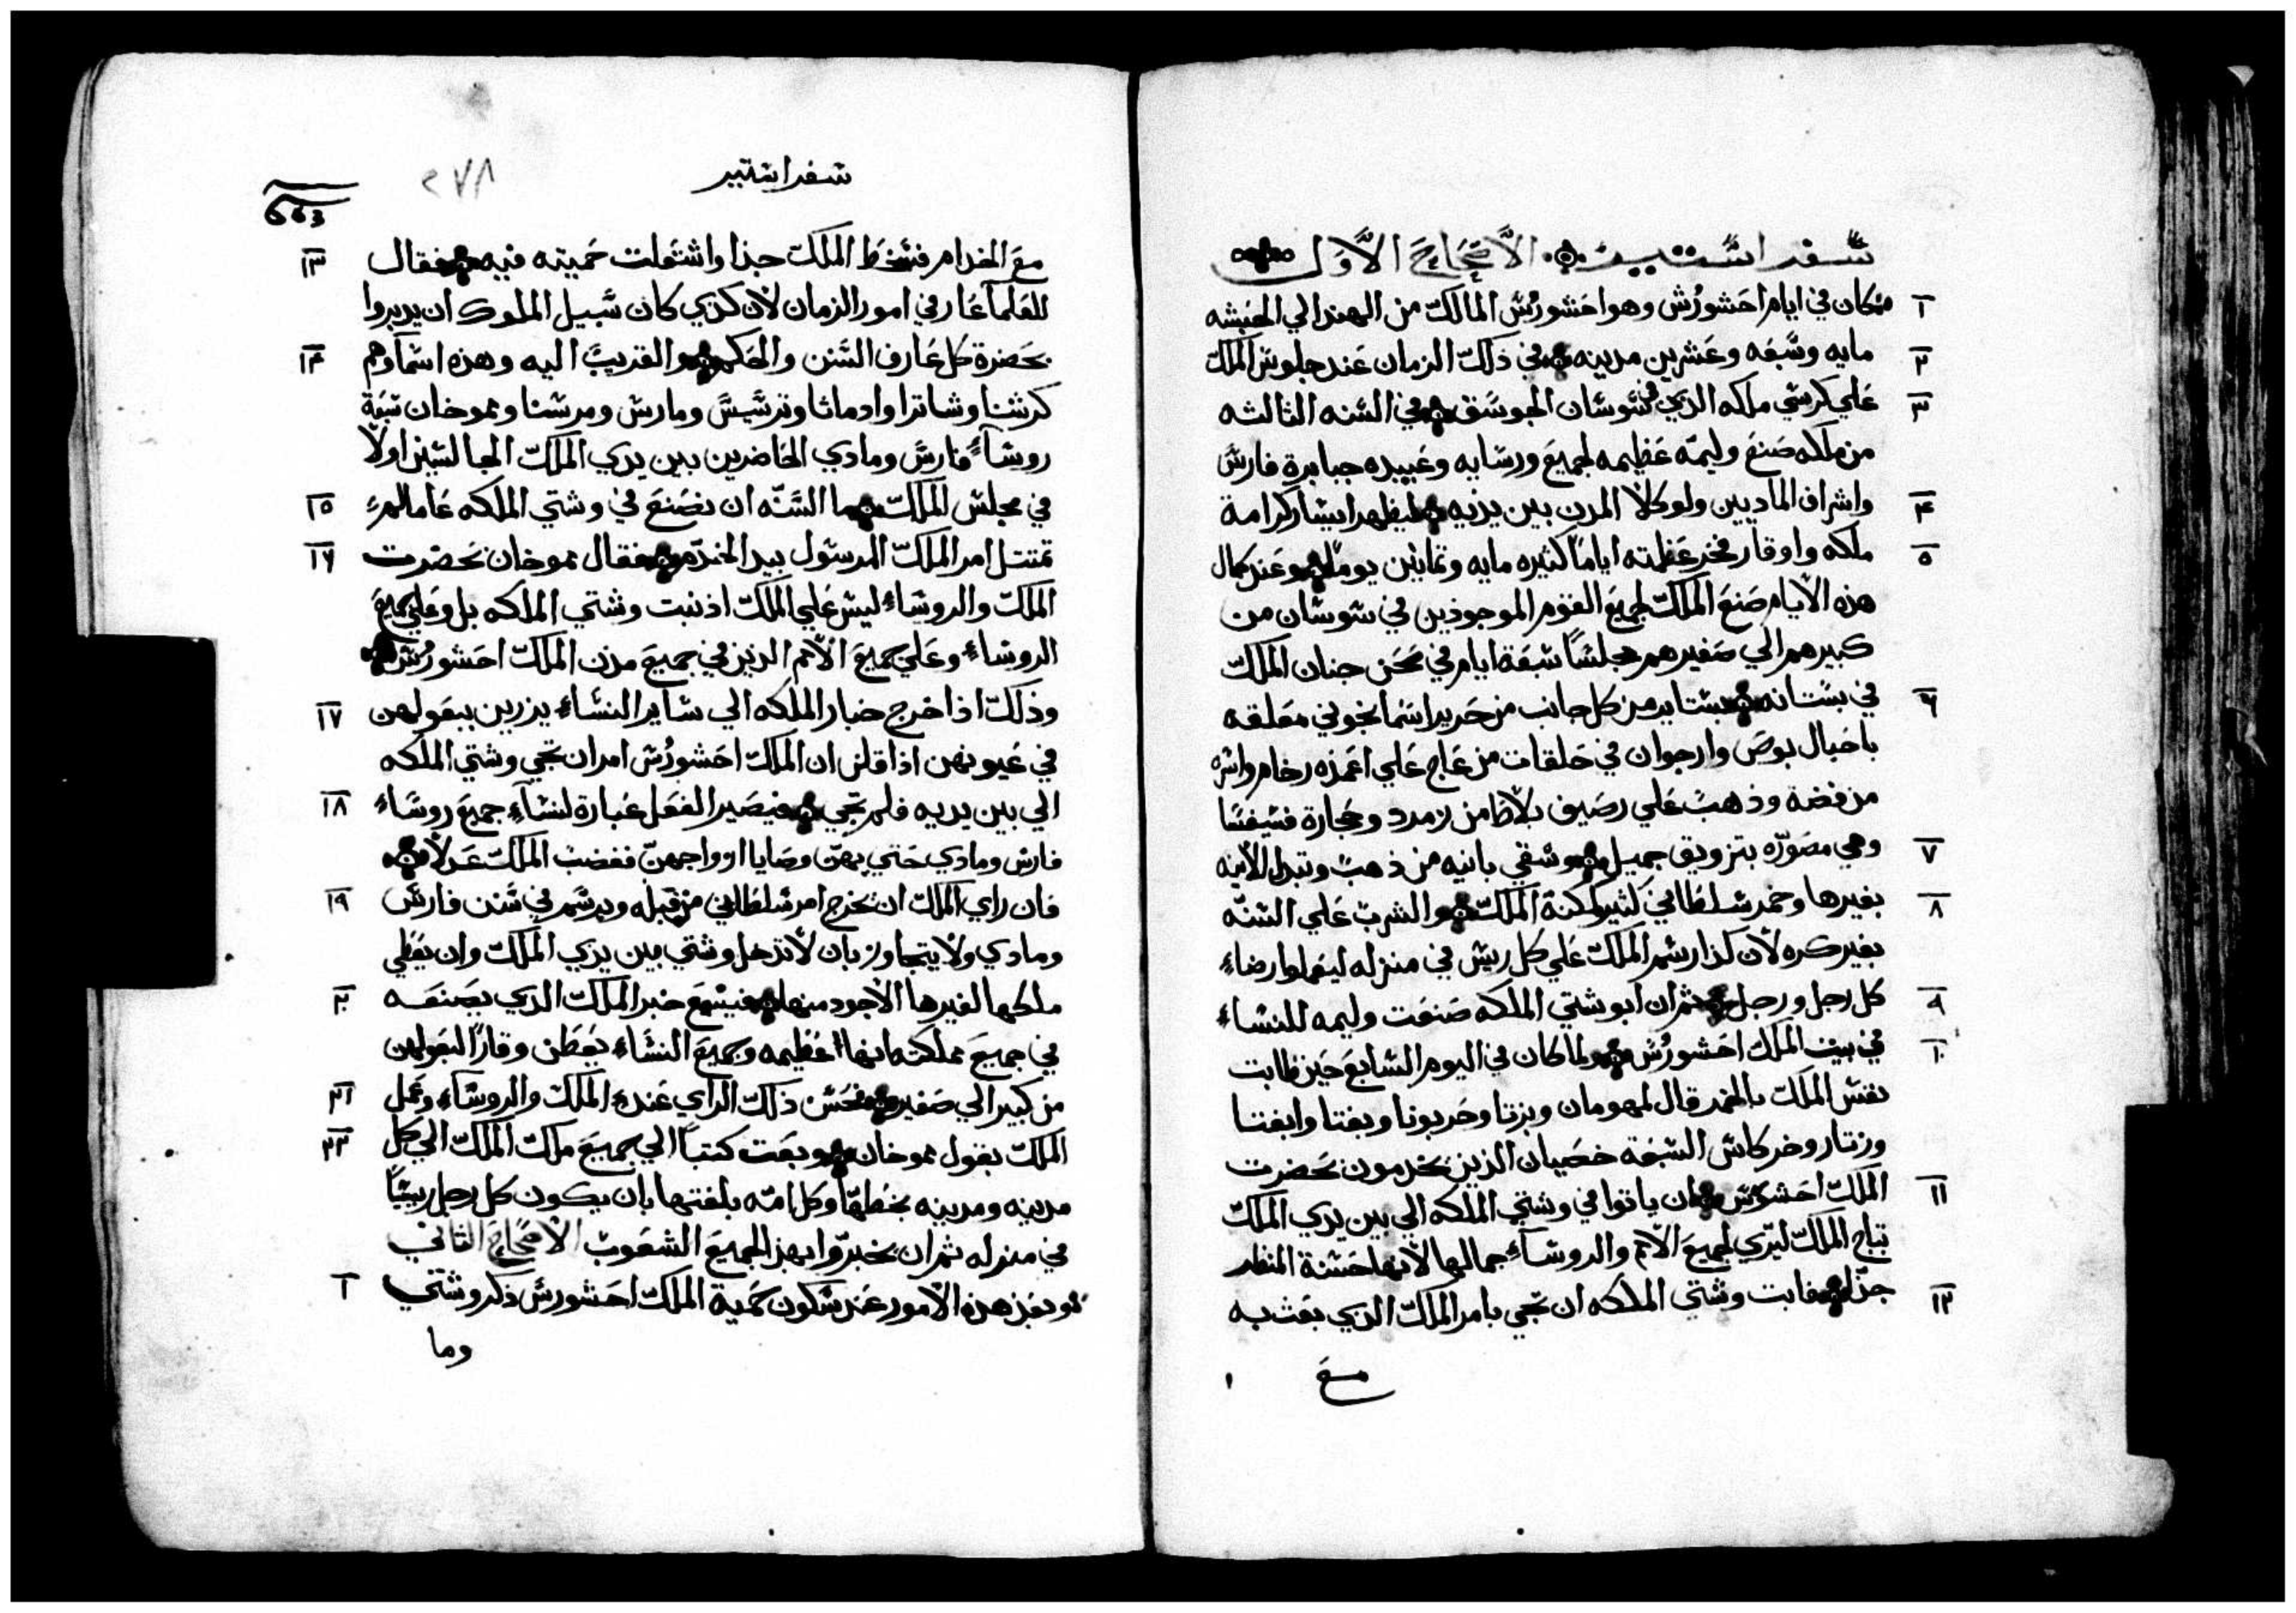 سفر استير الاصحاح الاول
١ فكان في ايام احشورُش وهو احشورُش المالك من الهند الي الحبشه
٢ مايه وسبعه وعشرين مدينه في ذلك الزمان عند جلوس الملك
٣ علي كرسي ملكه الذي في شوشان الجوسق في السنه الثالثه
من ملكه صنع وليمه عظيمه لجميع ورسايه وعبيده جبابرة فارس
٤ واشراف الماديين ولوكلا المدن بين يديه ليظهر ايسار كرامة
٥ ملكه واوقار فخر عظمته اياماً كثيره مايه وثمانين يوماً وعند كمال
هذه الايام صنع الملك لجميع القوم الموجودين في شوشان من
كبيرهم الي صغيرهم مجلساً سبعة ايام في صحن جنان الملك
٦ في بستانه بستاير من كل جانب من حرير اسمانجوني معلقه
باحبال بوص وارجوان في حلقات من عاج علي اعمده رخام واسره
من فضة وذهب علي رصيف بلاط من زمرد وحجارة فسيفسا
٧ وهي مصوّره بتزويق جميل وسقي بانيه من ذهب وتبدل الانيه
٨ بغيرها وخمر سلطاني كثير كمكنة الملك والشرب علي السنّه
بغير كره لان كذا رسم الملك علي كل ريس في منزله ليعملوا رضاء
٩ كل رجل ورجل ثم ان ابوشتي الملكه صنعت وليمه للنساء
١٠ في بيت الملك احشورُش ولما كان في اليوم السابع حين طابت
نفس الملك بالخمر قال لمهومان وبزتا وحربونا وبغتا وابغتا
وزتار وخركاس السبعة خصيان الذين يخدمون بحضرت
١١ الملك احشورش ان ياتوا في وشتي الملكه الي بين يدي الملك
بتاج الملك ليري لجميع الامم والروساء جمالها لانها حسنة المنظر
١٢ جدّاً فابت وشتي الملكه ان تجي بامر الملك الذي بعث به
مع
سفر استير
٢٧٨
١٣ مع الخدام فسخط الملك جدا واشتعلت حميته فيه فقال
للعلما عارفي امور الزمان لان كذي كان سبيل الملوك ان يدبروا
١٤ بحضرة كل عارف السنن والحكم والقريب اليه وهذه اسماوهم
كرشنا وشاترا وادماثا وترشيس ومارس ومرسنا ومموخان سبعة
روساء فارس ومادي الحاضرين بين يدي الملك الجالسين اولاً
١٥ في مجلس الملك ما السنّه ان نصنع في وشتي الملكه عاما لم
١٦ تمتثل امر الملك المرسول بيد الخدّم فقال مموخان بحضرت
الملك والروساء ليس علي الملك اذنبت وشتي الملكه بل وعلي جميع
الروساء وعلي جميع الامم الذين في جميع مدن الملك احشورُش
١٧ وذلك اذا خرج خبار الملكه الي ساير النساء يزرين ببعولهن
في عيونهن اذا قلن ان الملك احشورُش امر ان تجي وشتي الملكه
١٨ الي بين يديه فلم تجي فيصير الفعل عبارة لنساء جميع روساء
فارس ومادي حتي بهتّ وصايا ازواجهنّ فغضب الملك عدلاً
١٩ فان راي الملك ان يخرج امر سلطاني من قبله ويرسم في سنن فارس
ومادي ولا يتجاوز بان لا تدخل وشتي بين يدي الملك وان يعطي
٢٠ ملكها لغيرها الاجود منها فيسمع خبر الملك الذي يصنعه
في جميع مملكته بانها عظيمه وجميع النساء يعطن وقاراً لبعولهن
٢١ من كبير الي صغير فحسن ذلك الراي عند الملك والروساء وعمل
٢٢ الملك بقول مموخان وبعت كتباً الي جميع ملك الملك الي كل
مدينه ومدينه بخطها وكل امّه بلغتها بان يكون كل رجل ريساً
في منزله ثم ان يخبرّوا بهذا لجميع الشعوب الاصحاح الثاني
١ وبعد هذه الامور عند سكون حمية الملك احشورش ذكر وشتي
وما